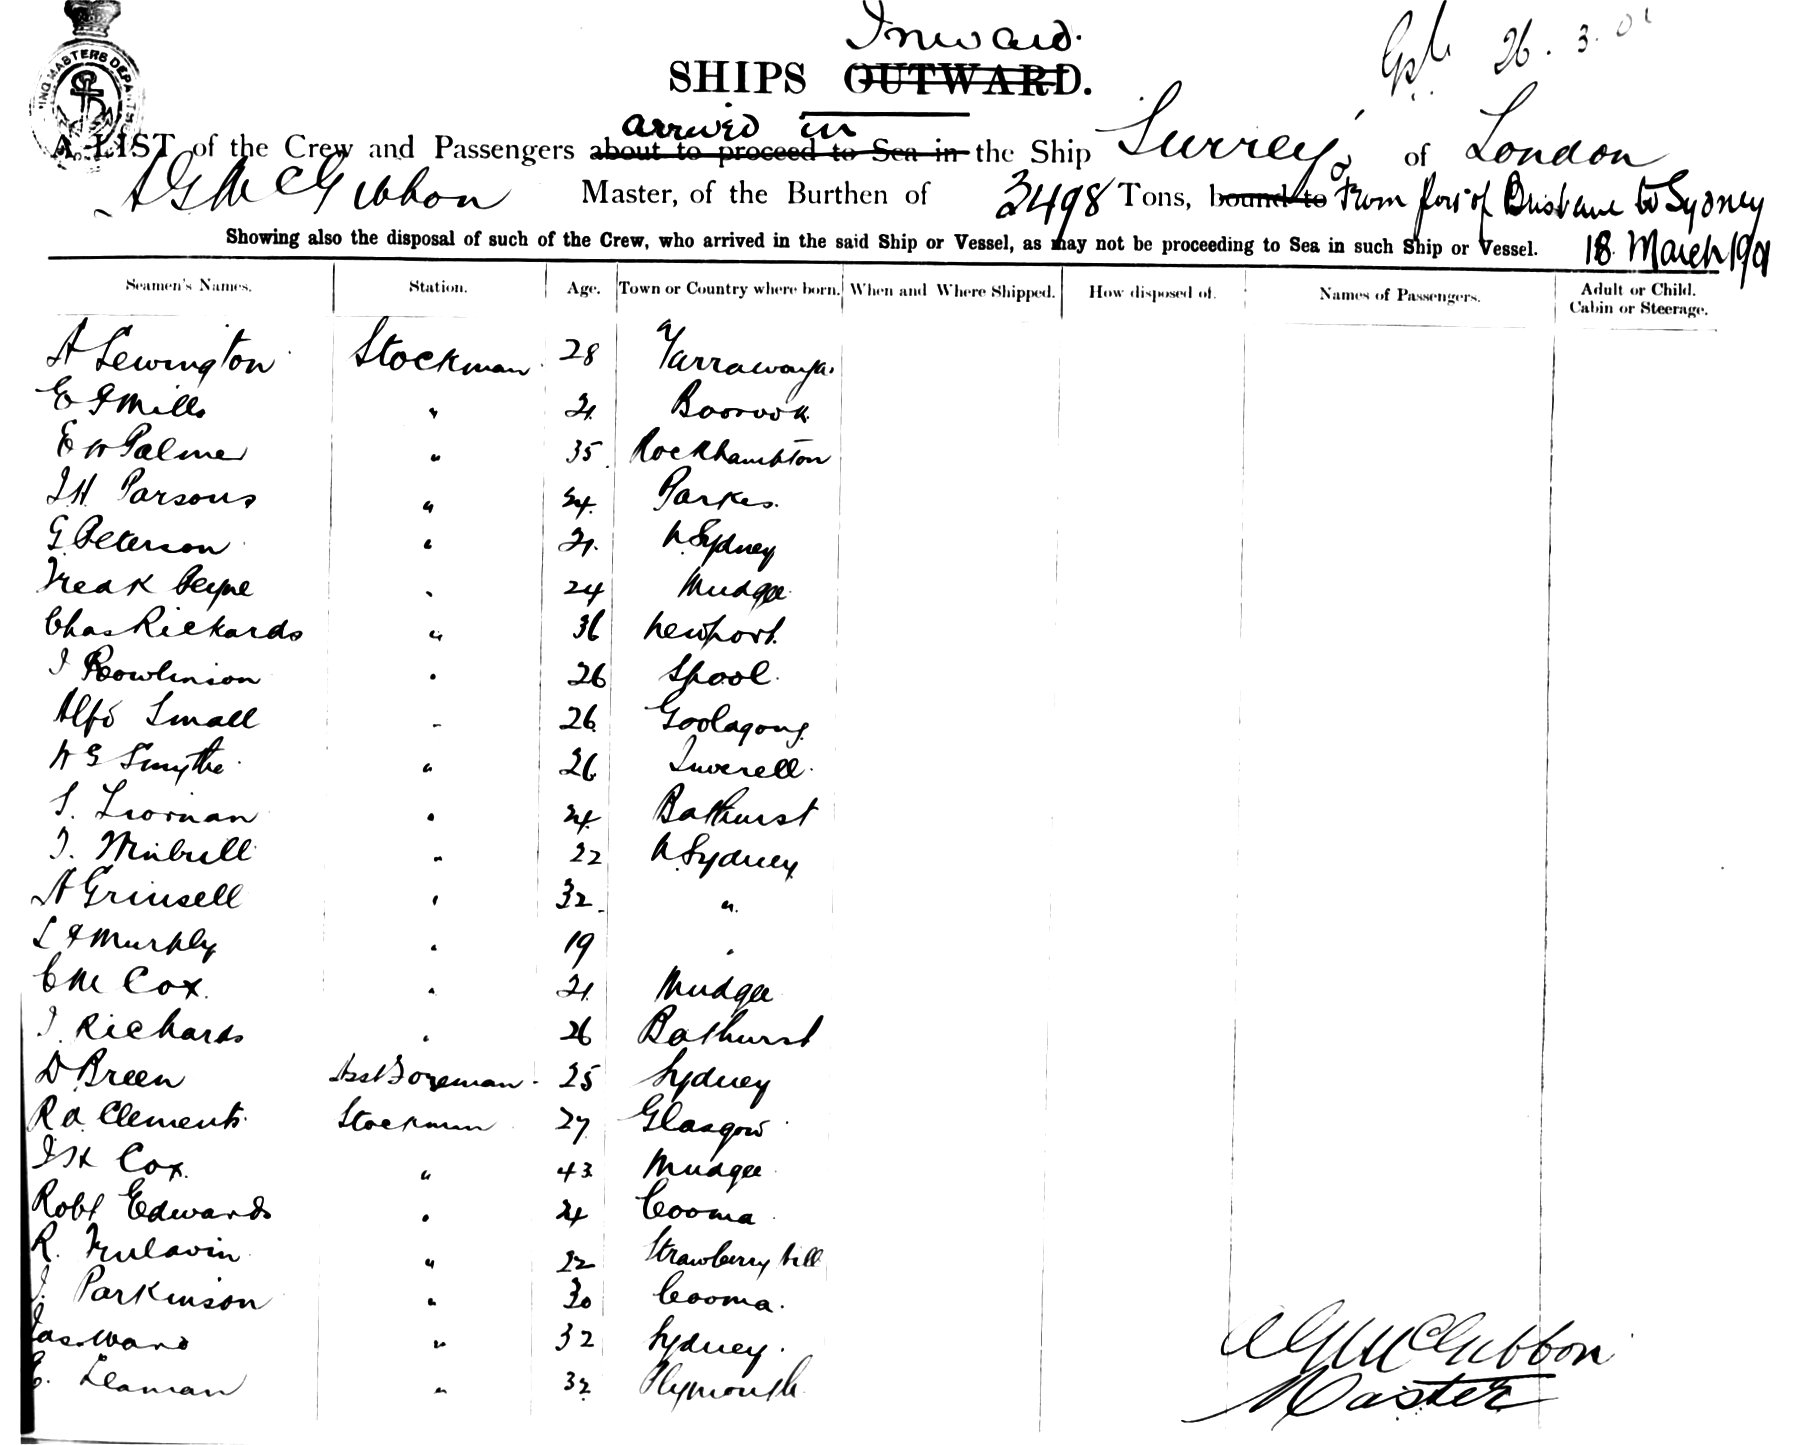 Inward.
26. 3. 01
SHIPS OUTWARD.
arrived in
A LIST of the Crew and Passengers about to proceed to Sea in the Ship Surrey, of London
A G McGibbon Master, of the Burthen of 3498 Tons, bound to From port of Brisbane to Sydney
Showing also the disposal of such of the Crew, who arrived in the said Ship or Vessel, as may not be proceeding to Sea in such Ship or Vessel. 18 March 1901
Seamen's Names. Station. Age. Town or Country where born. When and Where Shipped. How disposed of. Names of Passengers. Adult or Child. Cabin or Steerage.
A Lewington Stockman 28 Yarrawonga.
E F Mills " 21
E W Palmer " 35 Rockhampton
J.H. Parsons " 24 Parkes.
G Peterson " 21. N. Sydney
Fredk Peyne " 24 Mudgee
Chas Rickards " 36 Newport.
J Rowlinson " 26 Lpool
Alfd Small " 26 Goolagong
W G Smythe " 26 Inverell
" 24 Bathurst
" 22 N. Sydney
A Grinsell " 32 "
L F Murphy " 19 "
C M Cox. " 21 Mudgee
J. Richards " 26 Bathurst
D Breen Asst Foreman 25 Sydney
R A Clements Stockman 27 Glasgow
J H Cox. " 43 Mudgee
Robt Edwards " 24 Cooma
R. " 22 Strawberry hill
J. Parkinson " 30 Cooma.
Jas Ward " 32 Sydney.
E. Leaman " 32 Plymouth
A G McGibbon
Master